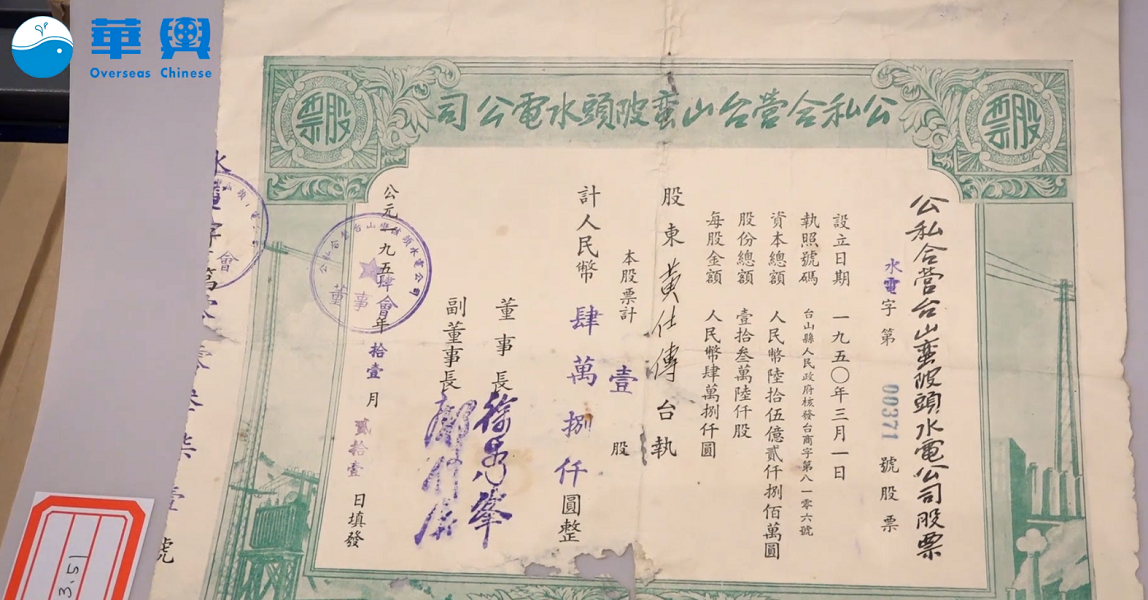 華興
Overseas Chinese
公私合營台山蛮陂頭水電公司
股票
股票
公私合營台山蛮陂頭水電公司股票
水電字第 00371 號股票
設立日期 一九五〇年三月一日
執照號碼 台山縣人民政府核發台商字第八一零六號
資本總額 人民幣陸拾伍億貳仟捌佰萬圓
股份總額 壹拾叁萬陸仟股
每股金額 人民幣肆萬捌仟圓
股東黃仕傳台執
本股票計 壹 股
計人民幣 肆萬捌仟圓整
董事長
副董事長
公元一九五肆年拾壹月貳拾壹日填發
董事會
水電字第
號
3.51